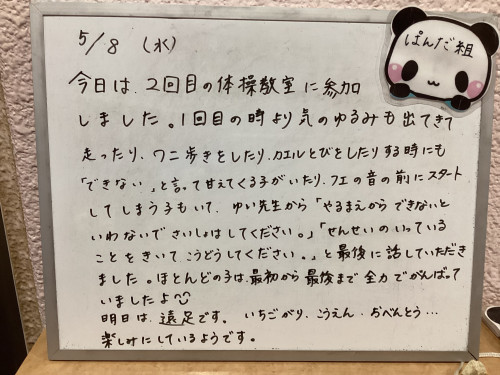 5/8 (水)
ぱんだ組
今日は、2回目の体操教室に参加
しました。1回目の時より気のゆるみも出てきて
走ったり、ワニ歩きをしたり、カエルとびをしたりする時にも
「できない」と言って甘えてくる子がいたり、フエの音の前にスタート
してしまう子もいて、ゆい先生から「やるまえからできないと
いわないでさいしょはしてください。」「せんせいのいっている
ことをきいてこうどうしてください。」と最後に話していただき
ました。ほとんどの子は、最初から最後まで全力でがんばって
いましたよ
明日は、遠足です。いちごがり、こうえん、おべんとう…
楽しみにしているようです。